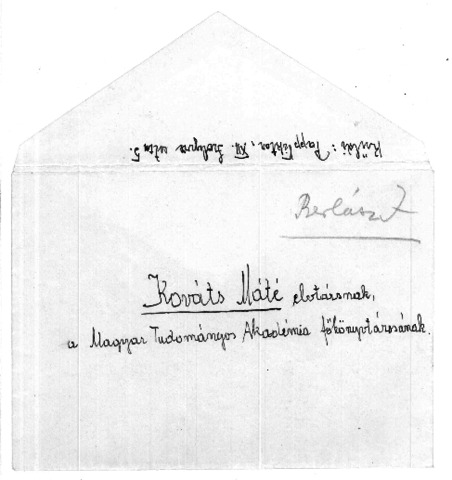 Küldi: Papp Viktor, XII. Szolyva utca 5.
Berlász J
Kováts Máté elvtársnak,
a Magyar Tudományos Akadémia főkönyvtárosának.